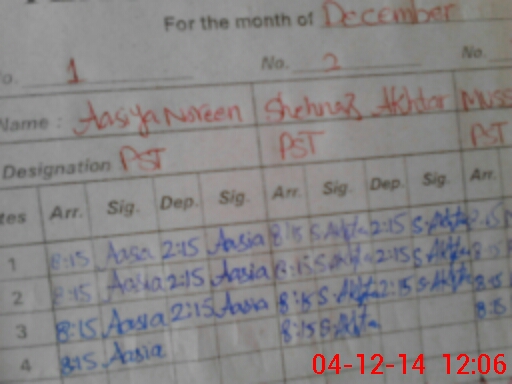 For the month of December
No. 1 No. 2 No.
Name : Aasiya Noreen Shehnaz Akhtar Muss
Designation PST PST PST
tes Arr. Sig. Dep. Sig. Arr. Sig. Dep. Sig. Arr.
1 8:15 Aasia 2:15 Aasia 8:15 S.Akhta 2:15 S.Akhta 8:15
2 8:15 Aasia 2:15 Aasia 8:15 S.Akhta 2:15 S.Akhta 8:15
3 8:15 Aasia 2:15 Aasia 8:15 S.Akhta 2:15 S.Akhta 8:15
4 8:15 Aasia 8:15 S.Akhta 8:15
04-12-14 12:06